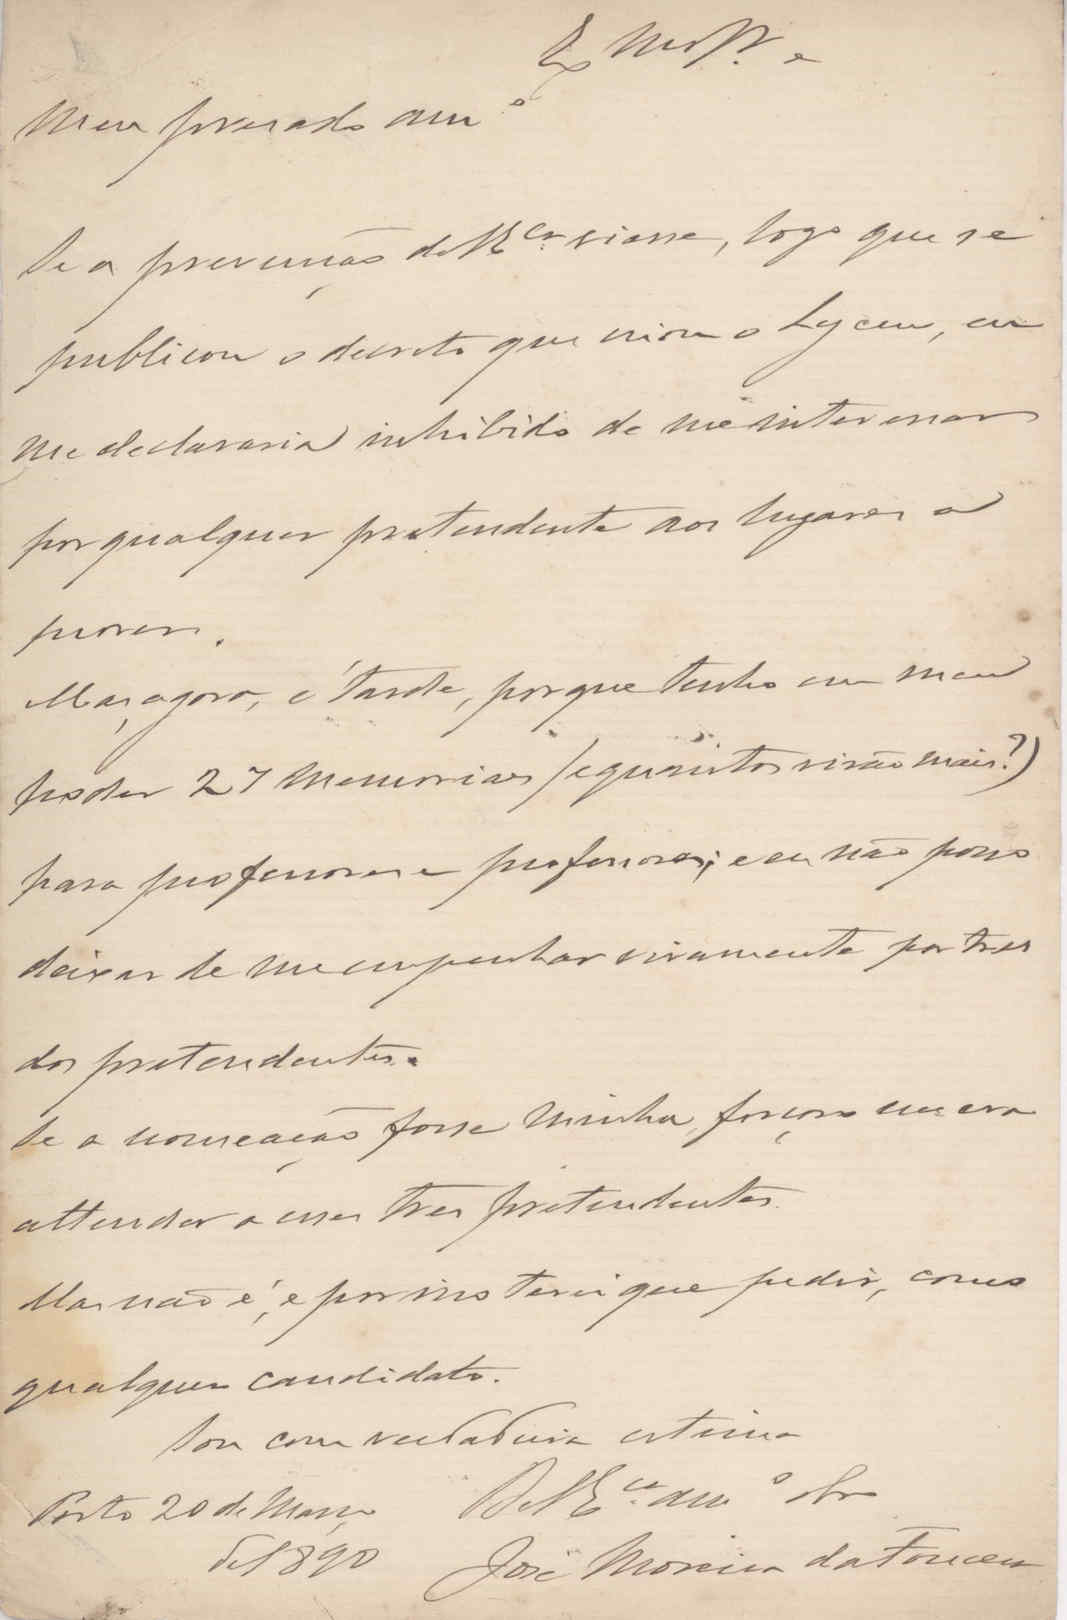 Ex.mo Sr. e
Meu presado am.o
Se a prevenção de V. Ex.cia viesse, logo que se
publicou o decreto que criou o Lyceu, eu
me declararia inhibido de me interessar
por qualquer pretendente aos lugares a
prover.
Mas, agora, é tarde, porque tenho em meu
poder 27 memoriaes (e quantos virão mais?)
para professores e professoras; e eu não posso
deixar de me empenhar vivamente por tres
dos pretendentes.
Se a nomeação fosse minha, forçoso me era
attender a esses tres pretendentes.
Mas não é, e por isso terei que pedir, como
qualquer candidato.
Sou com verdadeira estima
Porto 20 de Março
De V. Ex.cia am.o obr.o
de 1890
José Moreira da Fonseca